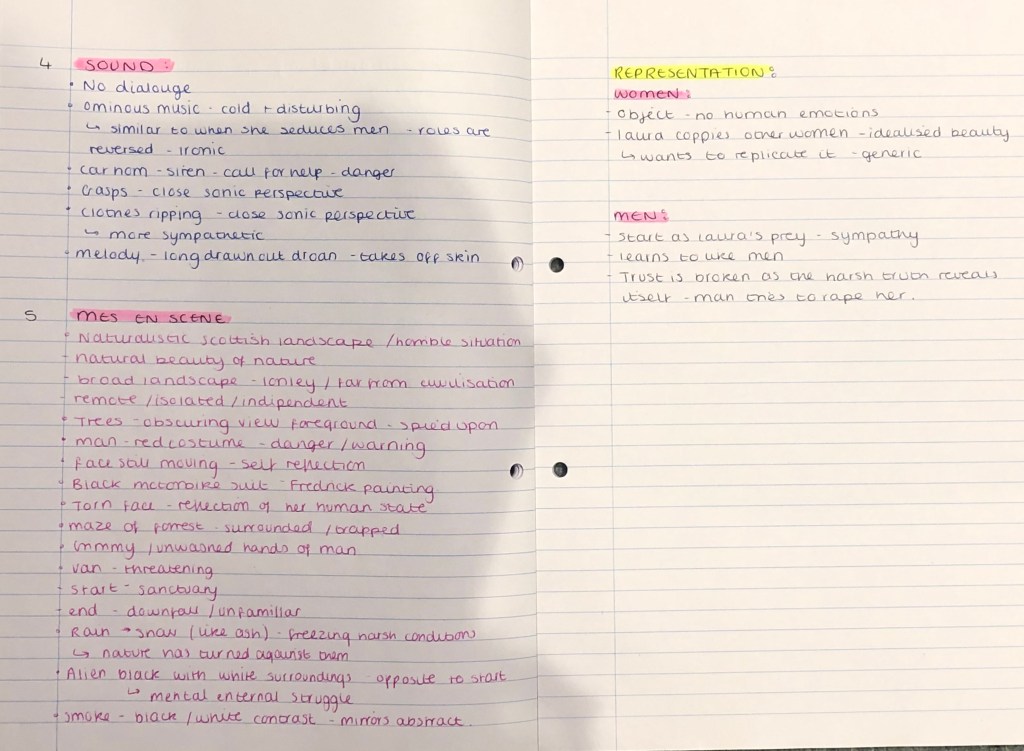 4 SOUND:
· No dialouge
· ominous music · cold + disturbing
↳ similar to when she seduces men - roles are
reversed - ironic
· car horn - siren - call for help - danger
· Gasps - close sonic perspective
· Clothes ripping - close sonic perspective
↳ more sympathetic
· melody - long drawn out droan - takes off skin
5 MES EN SCENE
· Naturalistic scottish landscape / horrible situation
- natural beauty of nature
- broad landscape - lonley / far from civilisation
- remote / isolated / indipendent
· Trees - obscuring view foreground - spied upon
- man - red costume - danger / warning
· face still moving - self reflection
· Black motorbike suit - Fredrick painting
· Torn face - reflection of her human state
· maze of forrest - surrounded / trapped
· Grimmy / unwashed hands of man
- van - threatening
- start - sanctuary
- end - downfall / unfamiliar
· Rain → snow (like ash) - freezing harsh conditions
↳ nature has turned against them
· Alien black with white surroundings - opposite to start
↳ mental enternal struggle
· smoke - black / white contrast - mirrors abstract
REPRESENTATION:
WOMEN:
- object - no human emotions
- laura coppies other women - idealised beauty
↳ wants to replicate it - generic
MEN:
- start as laura's prey - sympathy
- learns to like men
- Trust is broken as the harsh truth reveals
itself - man tries to rape her.